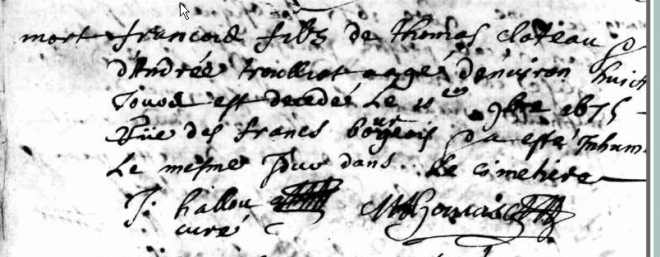 mort francois filz de Thomas clateau &
d'Andrée troilliot aagé d'environ huict
Jours est decedé Le 11e 9bre 1675
Rüe des francs bourgeois & a esté Inhum
Le mesme Jour dans Le cimetiere
J. hallou
curé MThomas